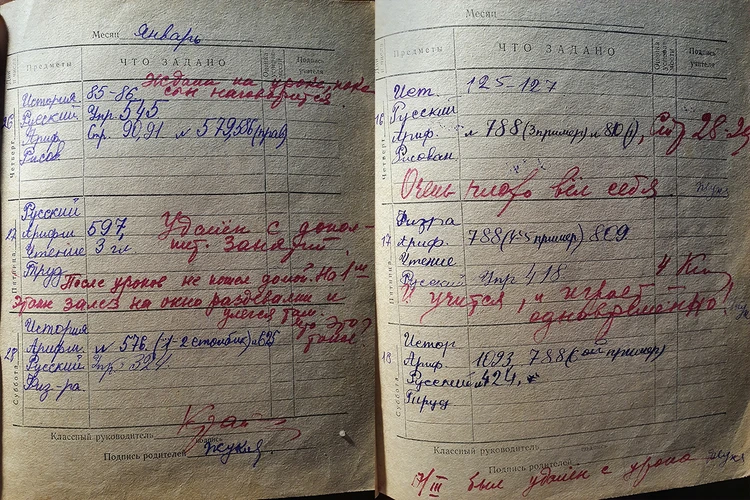 Месяц Январь
Предметы ЧТО ЗАДАНО Подпись учителя
Ждала на уроке, пока
сын наговорится
История 85-86
Русский Упр 545
Ариф. Стр. 90,91 № 579,586 (прав)
Рисов
Четверг
Русский
Арифм 597,
Чтение 3 гл.
Труд
Удалён с допол-
нит. занятий.
Пятница
После уроков не пошел домой. На 1м
этаже залез на окно раздевалки и
улегся там.
Что это
такое?
История
Арифм № 576. (1-2 столбик) № 625
Русский Упр. 524
Физ-ра.
Суббота
Классный руководитель
подпись
Подпись родителей Жукя
Месяц
Предметы ЧТО ЗАДАНО Подпись учителя
Ист. 125-127
Русский
Ариф. № 788 (3 пример) и 810 (), Стр 28-29
Рисован
Четверг
Очень плохо вёл себя. Жукя
17 Физра
Ариф. 788 (4-5 пример) 809
Чтение
Русский Упр 418
Пятница
И учится, и играет
одновременно!
Истор
18 Ариф. 1093, 788 (6 ой пример)
Русский № 424,
Труд
Суббота
Классный руководитель
Подпись родителей Жукя
17/III был удалён с урока